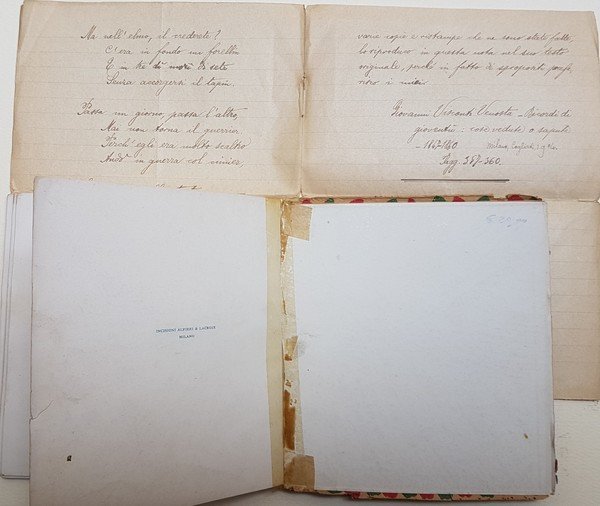 Ma nell'elmo, il crederete?
C'era in fondo un forellin
E in tre dì morì di sete
Senza accorgersi il tapin.
Passa un giorno, passa l'altro,
Mai non torna il guerrier,
Perch'egli era molto scaltro
Andò in guerra col cimier.
varie copie e ristampe che ne sono state fatte,
lo riproduco in questa nota nel suo testo
originale, perchè in fatto di spropositi, prefe-
risco i miei.
Giovanni Visconti Venosta - Ricordi di
gioventù: cose vedute o sapute
- 1847-1860 Milano, Cogliati,
Pagg. 357-360.
INCISIONI ALFIERI & LACROIX
MILANO